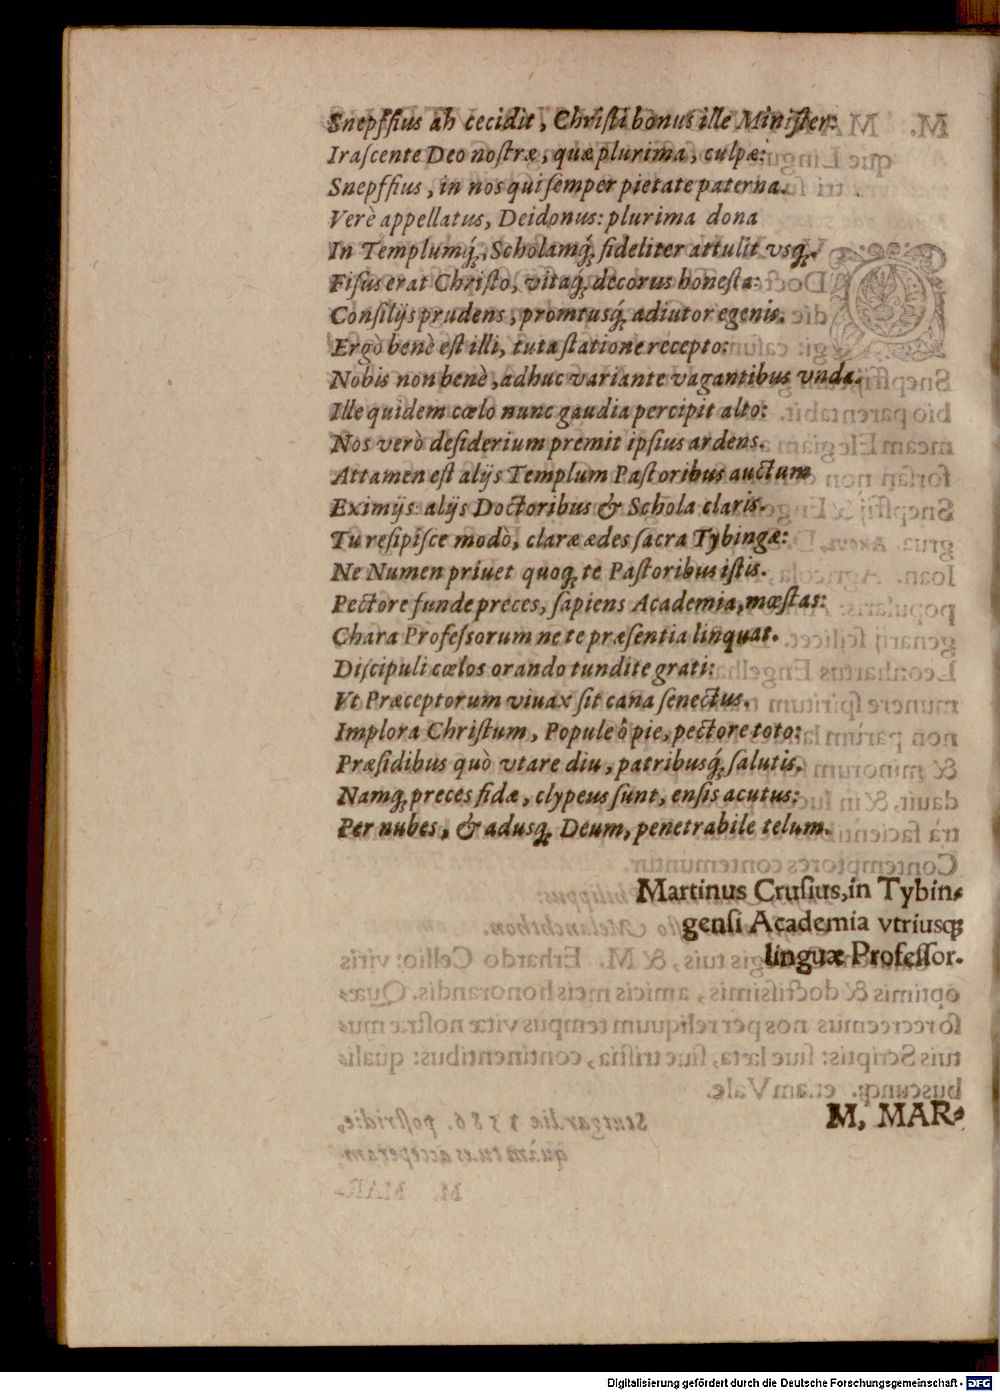 Snepffius ah cecidit, Christi bonus ille Minister:
Irascente Deo nostræ, quæ plurima, culpæ:
Snepffius, in nos qui semper pietate paterna.
Verè appellatus, Deidonus: plurima dona
In Templumq́;, Scholamq́; fideliter attulit vsq;.
Fisus erat Christo, vitaq́; decorus honesta:
Consilijs prudens, promtusq́; adiutor egenis.
Ergò benè est illi, tuta statione recepto:
Nobis non benè, adhuc variante vagantibus vnda.
Ille quidem cœlo nunc gaudia percipit alto:
Nos verò desiderium premit ipsius ardens.
Attamen est alijs Templum Pastoribus auctum
Eximijs: alijs Doctoribus & Schola claris.
Tu resipisce modò, claræ ædes sacra Tybingæ:
Ne Numen priuet quoq; te Pastoribus istis.
Pectore funde preces, sapiens Academia, mœstas:
Chara Professorum ne te præsentia linquat.
Discipuli cœlos orando tundite grati:
Vt Præceptorum viuax sit cana senectus.
Implora Christum, Popule ô pie, pectore toto:
Præsidibus quò vtare diu, patribusq́; salutis.
Namq; preces fidæ, clypeus sunt, ensis acutus:
Per nubes, & adusq; Deum, penetrabile telum.
Martinus Crusius, in Tybin-
gensi Academia vtriusq;
linguæ Professor.
M. MAR-
Digitalisierung gefördert durch die Deutsche Forschungsgemeinschaft - DFG